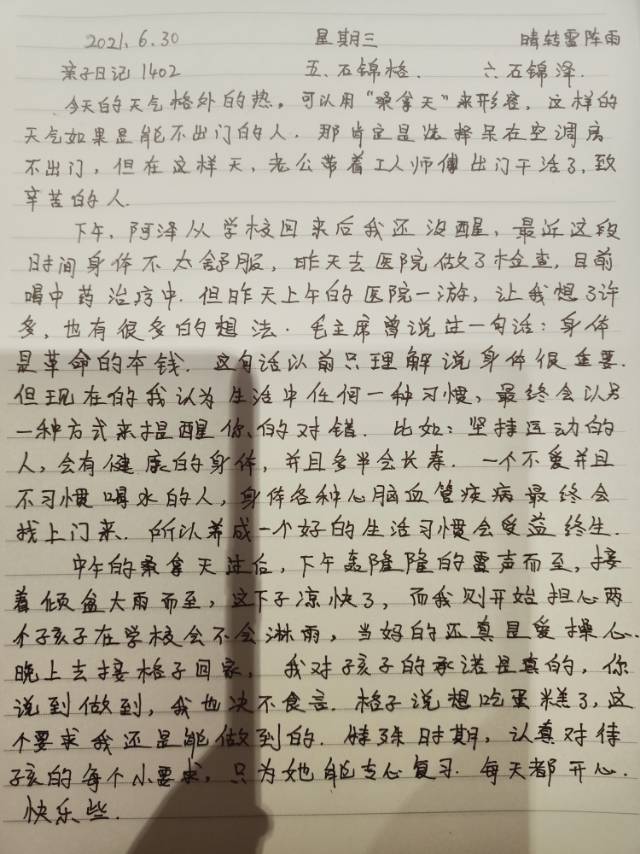 2021.6.30 星期三 晴转雷阵雨
亲子日记1402 五.石锦格. 六石锦泽.
今天的天气格外的热。可以用“桑拿天”来形容，这样的
天气如果是能不出门的人.那肯定是选择呆在空调房
不出门，但在这样天，老公带着工人师傅出门干活了，致
辛苦的人.
下午，阿泽从学校回来后我还没醒，最近这段
时间身体不太舒服，昨天去医院做了检查，目前
喝中药治疗中.但昨天上午的医院一游，让我想了许
多，也有很多的想法.毛主席曾说过一句话：身体
是革命的本钱.这句话以前只理解说身体很重要.
但现在的我认为生活中任何一种习惯，最终会以另
一种方式来提醒你的对错.比如：坚持运动的
人，会有健康的身体，并且多半会长寿.一个不爱并且
不习惯喝水的人，身体各种心脑血管疾病最终会
找上门来.所以养成一个好的生活习惯会受益终生.
中午的桑拿天过后，下午轰隆隆的雷声而至，接
着倾盆大雨而至，这下子凉快了，而我则开始担心两
个孩子在学校会不会淋雨，当妈的还真是爱操心..
晚上去接格子回家，我对孩子的承诺是真的，你
说到做到，我也决不食言.格子说想吃蛋糕了，这
个要求我还是能做到的.特殊时期，认真对待
孩的每个小要求，只为她能专心复习.每天都开心.
快乐些.